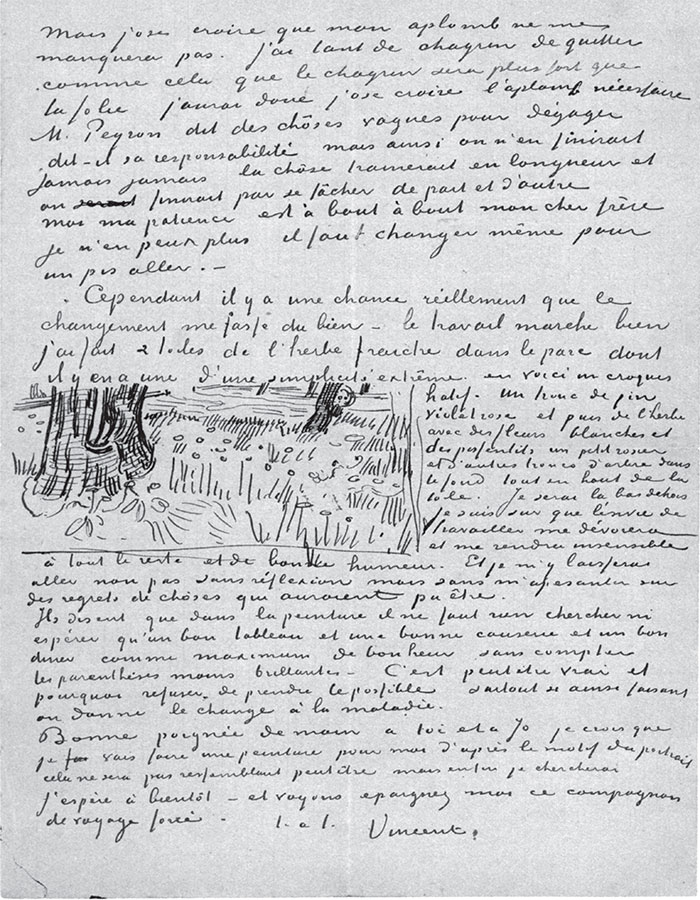 Mais j'ose croire que mon aplomb ne me
manquera pas. j'ai tant de chagrin de quitter
comme cela que le chagrin sera plus fort que
la folie j'aurai donc j'ose croire l'aplomb nécessaire
M. Peyron dit des chôses vagues pour dégager
dit-il sa responsabilité mais ainsi on n'en finirait
jamais jamais la chôse trainerait en longueur et
on serait finirait par se fâcher de part et d'autre
moi ma patience est à bout à bout mon cher frère
je n'en peux plus il faut changer même pour
un pis aller. —
Cependant il y a une chance réellement que le
changement me fasse du bien — le travail marche bien
j'ai fait 2 toiles de l'herbe fraiche dans le parc dont
il y en a une d'une simplicité extrême. en voici un croquis
hatif. Un tronc de pin
violet rose et puis de l'herbe
avec des fleurs blanches et
des pissenlits un petit rosier
et d'autres troncs d'arbre dans
le fond tout en haut de la
toile. Je serai là bas dehors
je suis sur que l'envie de
travailler me dévorera
et me rendra insensible
à tout le reste et de bonne humeur. Et je m'y laisserai
aller non pas sans réflexion mais sans m'apesantir sur
des regrets de chôses qui auraient pu être.
Ils disent que dans la peinture il ne faut rien chercher ni
espérer qu'un bon tableau et une bonne causerie et un bon
diner comme maximum de bonheur sans compter
les parenthèses moins brillantes — C'est peutêtre vrai et
pourquoi refuser de prendre le possible surtout si ainsi faisant
on donne le change à la maladie.
Bonne poignée de main à toi et à Jo je crois que
je vais faire une peinture pour moi d'après le motif du portrait
cela ne sera pas ressemblant peutêtre mais enfin je chercherai
J'espère à bientôt — et voyons épargnez moi ce compagnon
de voyage forcé. t. à t. Vincent.